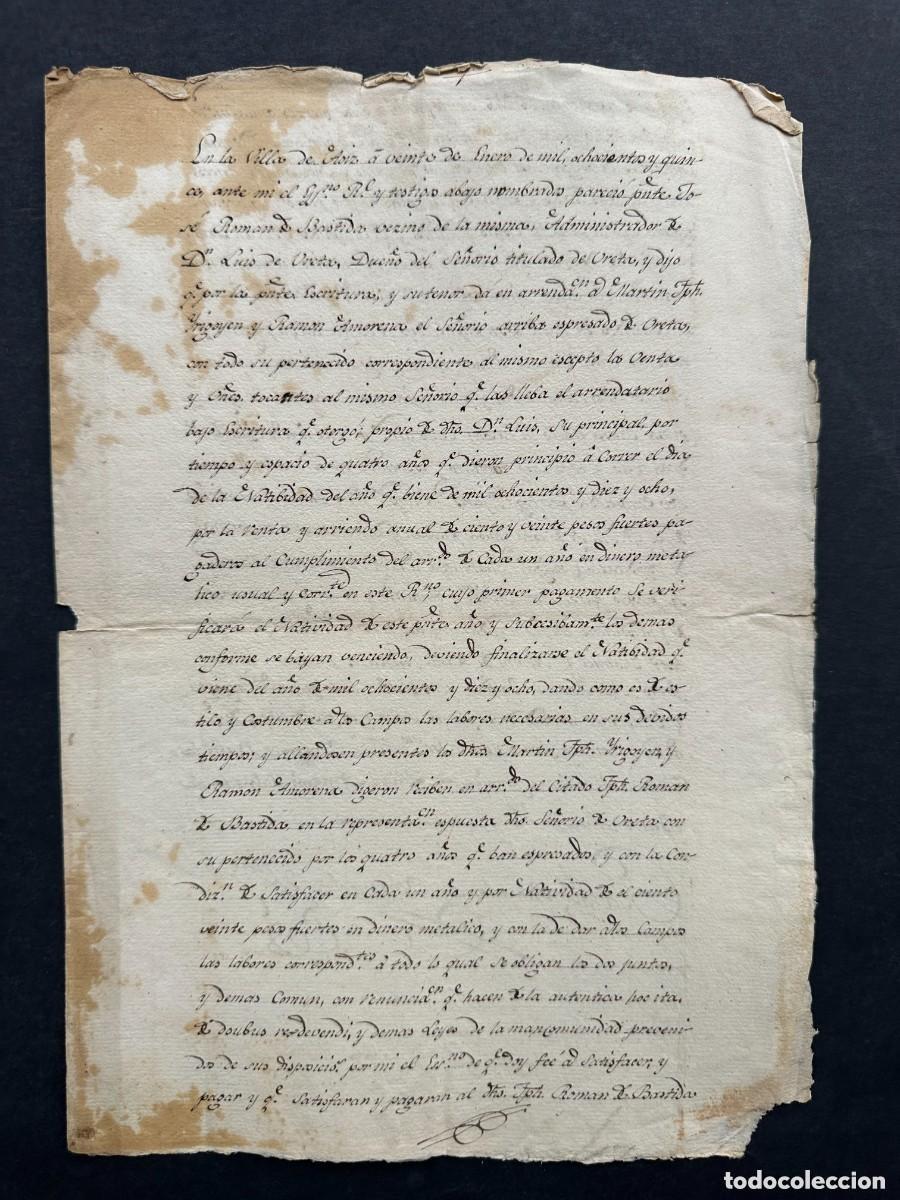 En la Villa de Aoiz â veinte de Enero de mil, ochocientos y quin-
ce, ante mi el Ess.no R.l y testigos abajo nombrados pareció pnte Jo-
sé Roman de Bastida vezino de la misma, Administrador de
D.n Luis de Oreta, Dueño del Señorio titulado de Oreta, y dijo
q.e por la pnte Escritura, y su tenor da en arrenda.on â Martin Jph.
Yrigoyen y Ramon Amorena el Señorio arriba espresado de Oreta,
con todo su pertenecido correspondiente al mismo escepto la Venta
y tocantes al mismo Señorio q.e las lleba el arrendatario
bajo Escritura q.e otorgó, propio de dho. D.n Luis, su principal por
tiempo y espacio de quatro años q.e dieron principio â Correr el dia
de la Natibidad del año q.e biene de mil ochocientos y diez y ocho,
por la renta y arriendo anual de ciento y veinte pesos fuertes pa-
gaderos al Cumplimiento del arr.do de Cada un año en dinero meta-
lico usual y Corr.te en este R.no, cuyo primer pagamento se veri-
ficará el Natividad de este pnte año y subcesibam.te los demas
conforme se bayan venciendo, deviendo finalizarse el Natibidad q.e
viene del año de mil ochocientos y diez y ocho, dando como es de es-
tilo y Costumbre â los Campos las labores necesarias en sus debidos
tiempos; y allandosen presentes los dhos Martin Jph. Yrigoyen, y
Ramon Amorena digeron reiben en arr.do del Citado Jph. Roman
de Bastida en la representa.on espuesta dho. Señorio de Oreta con
su pertenecido por los quatro años q.e ban espresados, y con la Con-
diz.n de Satisfacer en Cada un año y por Natividad de el ciento
veinte pesos fuertes en dinero metalico, y con la de dar alos Campos
las labores correspond.tes â todo lo qual se obligan los dos juntos,
y demas Comun, con renuncia.on q.e hacen de la autentica hoc ita,
de doubus res devendi, y demas Leyes de la mancomunidad preveni-
do de sus disposicio.s por mi el Es.no de q.e doy feé âd Satisfacer, y
pagar y q.e Satisfaran y pagaran al dho. Jph. Roman de Bastida
todocoleccion